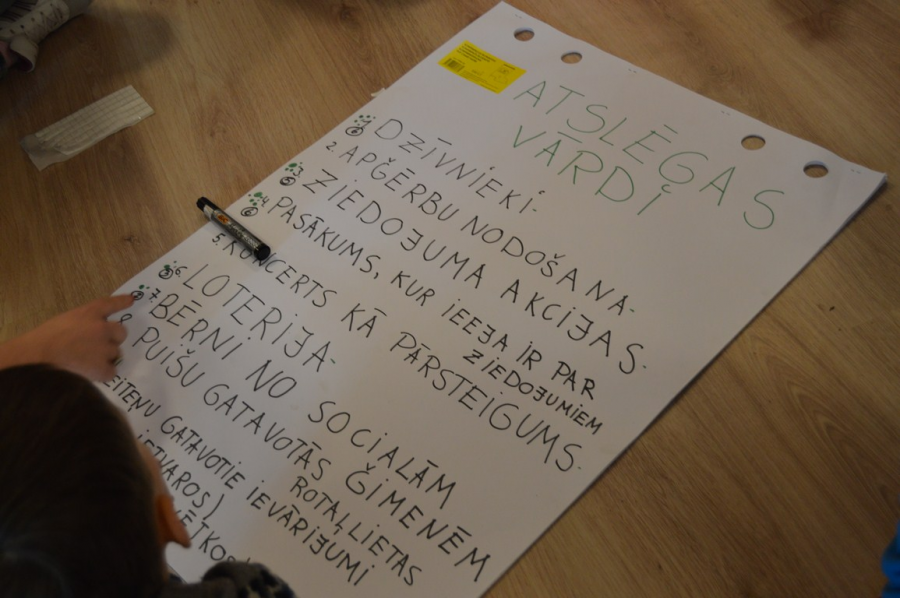 ATSLĒGAS
VĀRDI
1. DZĪVNIEKI.
2. APĢĒRBU NODOŠANA.
3. ZIEDOJUMA AKCIJAS.
4. PASĀKUMS, KUR IEEJA IR PAR
ZIEDOJUMIEM
5. KONCERTS KĀ PĀRSTEIGUMS.
6. LOTERIJA.
7. BĒRNI NO SOCIĀLĀM ĢIMENĒM
8. PUIŠU GATAVOTĀS ROTAĻLIETAS
GATAVOTIE IEVĀRĪJUMI